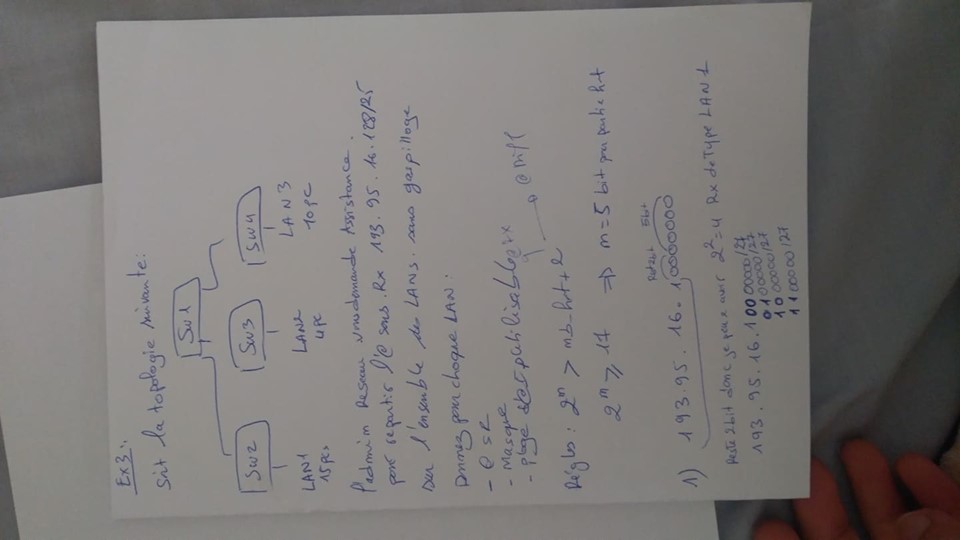 Ex3:
Soit la topologie suivante:
Sw1
Sw2 Sw3 Sw4
LAN1 LAN2 LAN3
15pcs 4pc 10pc
l'admin Reseau vous demande Assistance.
pour repartir l'@ sous.Rx 193.95.16.128/25
sur l'ensemble des LANs. sans gaspillage
Donnez pour chaque LAN:
- @ SR
- Masque
- plage d'@IP utilisable @RX
@Diff
Régles: 2^m > nb-hot+2
2^m ≥ 17 => m=5 bit pour partie hot
Rest 2bit 5bit
1) 193.95.16.10000000
Reste 2bit donc je peux avoir 2^2=4 Rx de Type LAN1
193.95.16.10000000/27
0100000/27
1000000/27
1100000/27